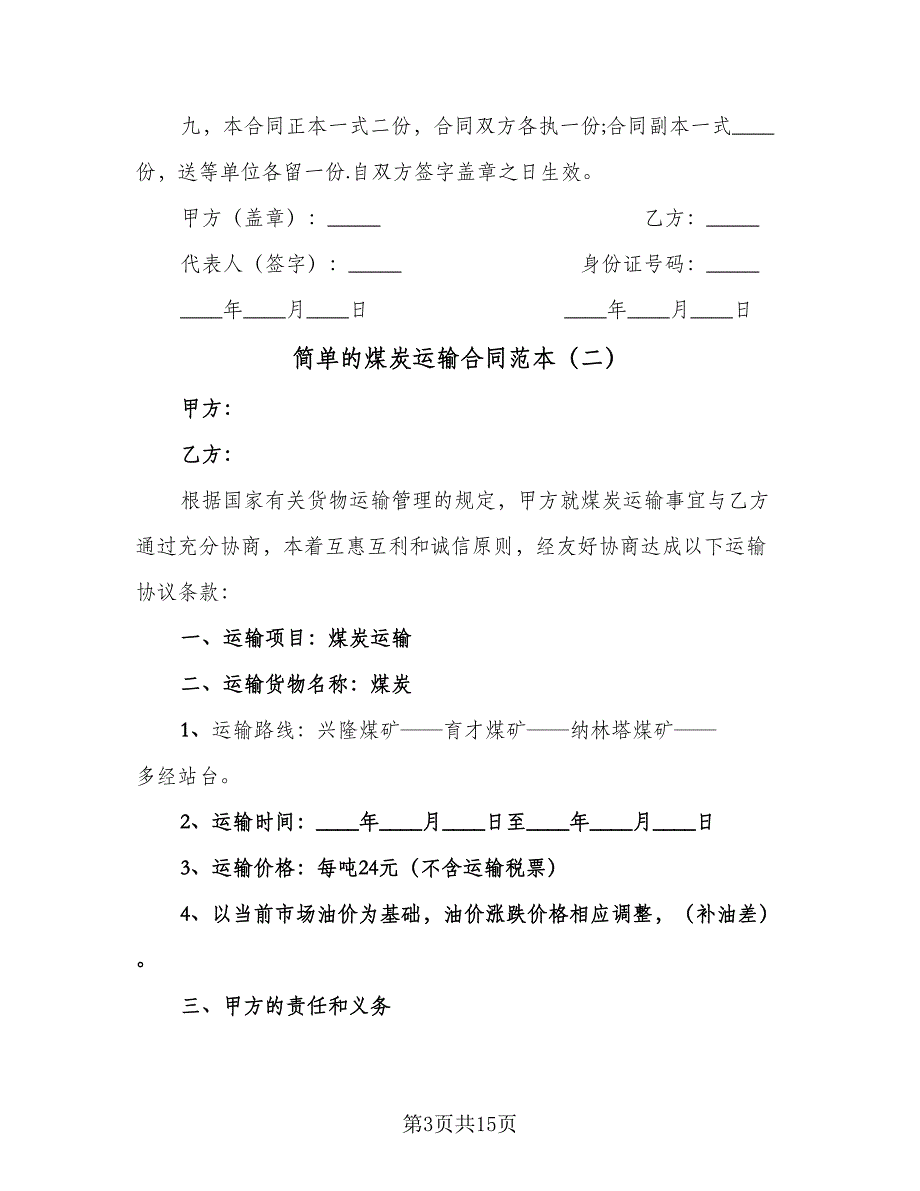 九，本合同正本一式二份，合同双方各执一份;合同副本一式____
份，送等单位各留一份.自双方签字盖章之日生效。
甲方（盖章）：_____ 乙方：_____
代表人（签字）：_____ 身份证号码：_____
____年____月____日 ____年____月____日
简单的煤炭运输合同范本（二）
甲方：
乙方：
根据国家有关货物运输管理的规定，甲方就煤炭运输事宜与乙方
通过充分协商，本着互惠互利和诚信原则，经友好协商达成以下运输
协议条款：
一、运输项目：煤炭运输
二、运输货物名称：煤炭
1、运输路线：兴隆煤矿——育才煤矿——纳林塔煤矿——
多经站台。
2、运输时间：____年____月____日至____年____月____日
3、运输价格：每吨24元（不含运输税票）
4、以当前市场油价为基础，油价涨跌价格相应调整，（补油差）
。
三、甲方的责任和义务
第3页共15页